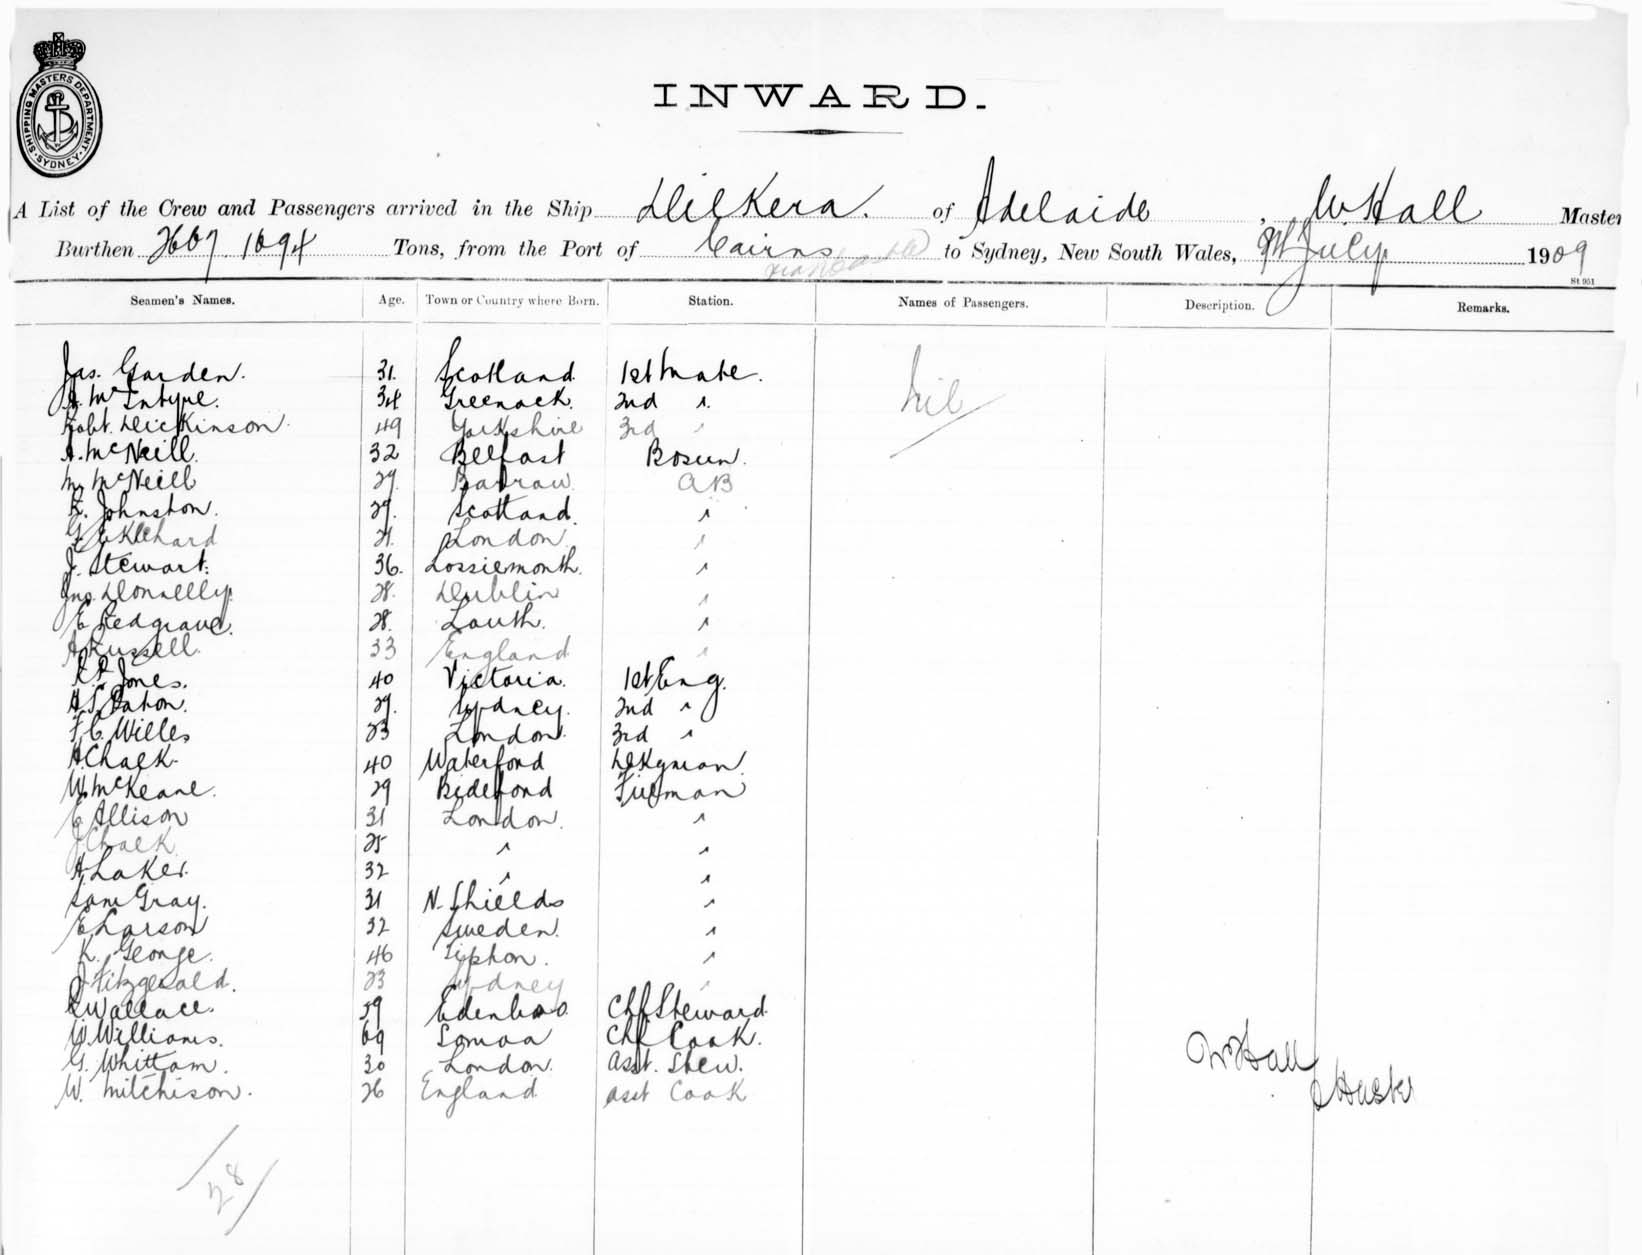 SHIPPING MASTERS DEPARTMENT. SYDNEY.
INWARD.
A List of the Crew and Passengers arrived in the Ship Dilkera. of Adelaide, W. Hall Master
Burthen 2607. 1694 Tons, from the Port of Cairns to Sydney, New South Wales, 9th July 1909
St 951
Seamen's Names. Age. Town or Country where Born. Station. Names of Passengers. Description. Remarks.
Jas. Garden. 31. Scotland. 1st Mate. Nil
A. McIntyre. 34 Greenock. 2nd "
Robt. Dickinson. 49 Yorkshire 3rd "
A. McNeill. 32 Belfast Bosun.
M. McNeill 29. Barrow. AB
R. Johnston. 29. Scotland. "
21. London "
J. Stewart. 36. Lossiemonth. "
Jno. Donnelly. 28. Dublin "
E Redgrave. 28. Louth. "
A Russell. 33 England "
Jones. 40 Victoria. 1st Eng.
H. S. Paton. 29. Sydney. 2nd "
F. C. Willes 23 London. 3rd "
H. Chalk. 40 Waterford Dkyman.
W. McKeane. 29 Bideford Fireman
E Allison 31 London. "
J Chalk 25 " "
A. Laker. 32 " "
Sam Gray. 31 N. Shields "
E Larson 32 Sweden. "
K. George. 46 "
J Fitzgerald. 23 Sydney "
R Wallace. 59 Edenboro Chf. Steward.
W. Williams. 69 Samoa Chf Cook.
G. Whittam. 30 London. Asst. Stew.
W. Mitchison. 26 England Asst Cook
W Hall
28